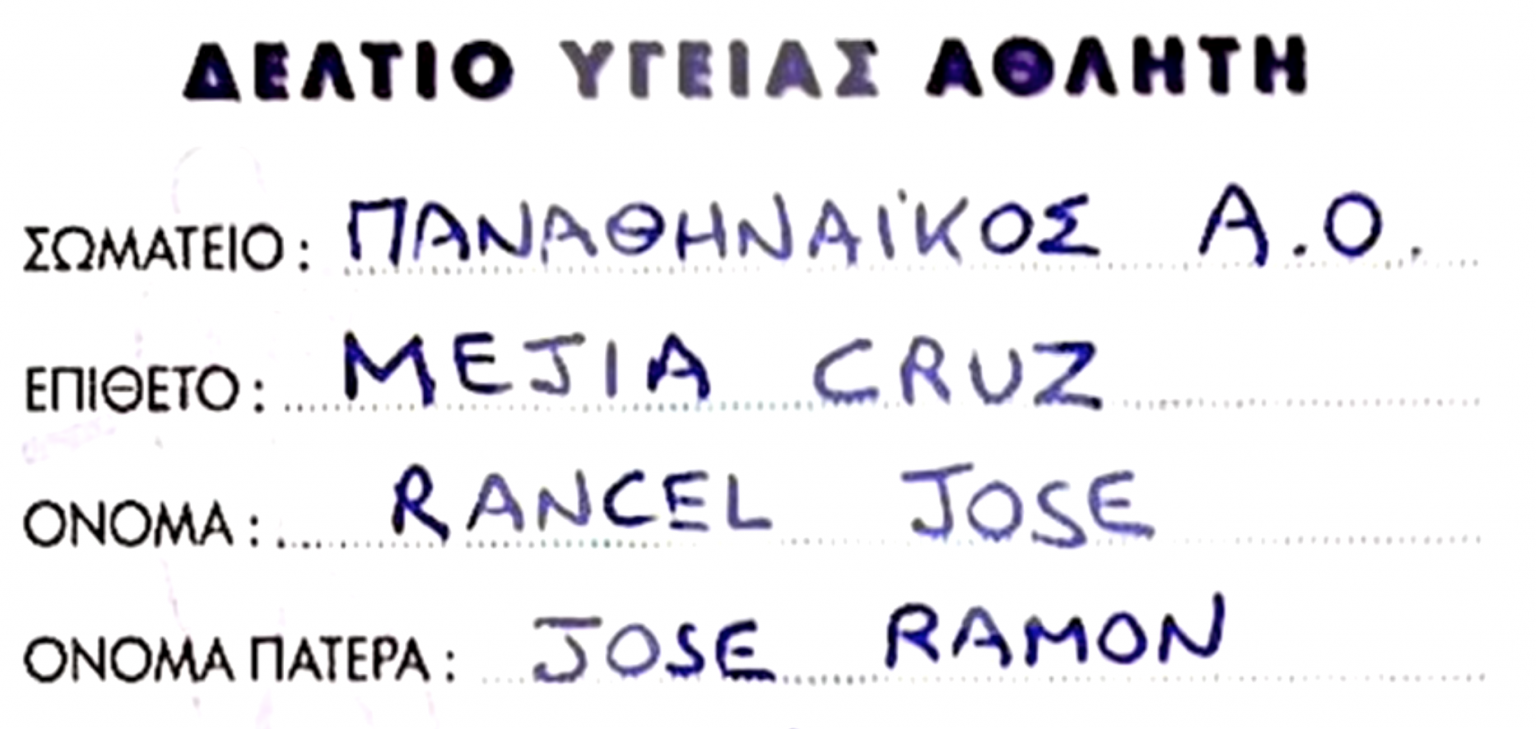 ΔΕΛΤΙΟ ΥΓΕΙΑΣ ΑΘΛΗΤΗ
ΣΩΜΑΤΕΙΟ: ΠΑΝΑΘΗΝΑΪΚΟΣ Α.Ο.
ΕΠΙΘΕΤΟ: MEJIA CRUZ
ΟΝΟΜΑ: RANCEL JOSE
ΟΝΟΜΑ ΠΑΤΕΡΑ: JOSE RAMON